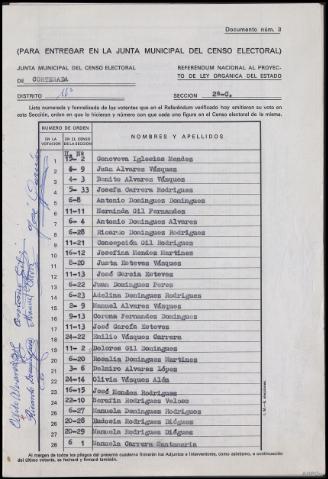 Documento núm. 3
(PARA ENTREGAR EN LA JUNTA MUNICIPAL DEL CENSO ELECTORAL)
JUNTA MUNICIPAL DEL CENSO ELECTORAL
DE CORTEGADA
REFERENDUM NACIONAL AL PROYECTO DE LEY ORGÁNICA DEL ESTADO
DISTRITO
SECCION 2ª-C.
Lista numerada y formalizada de los votantes que en el Referéndum verificado hoy emitieron su voto en
esta Sección, orden en que lo hicieron y número con que cada uno figura en el Censo electoral de la misma.
NUMERO DE ORDEN
EN LA VOTACION
EN EL CENSO DE LA SECCION
NOMBRES Y APELLIDOS
H. Nº
1 13- 2 Genoveva Iglesias Mendes
2 9 Juan Alvares Vásques
3 4- 3 Benito Alvares Vásques
4 5 33 Josefa Carrera Rodrigues
5 6-8 Antonio Domingues Domingues
6 11-11 Herminda Gil Fernandes
7 6- 4 Antonio Domingues Alvares
8 6-28 Ricardo Domingues Rodrigues
9 11-21 Concepción Gil Rodrigues
10 16-12 Josefina Mendes Martines
11 8-20 Justa Esteves Vásques
12 11-13 José Garcia Esteves
13 6-22 Juan Domingues Peres
14 6-23 Adelina Domingues Rodrigues
15 2- 9 Manuel Alvares Vásques
16 9-13 Corona Fernandes Domingues
17 11-13 José García Esteves
18 24-22 Emilio Vásques Carrera
19 11- 2 Dolores Gil Domingues
20 6-20 Rosalia Domingues Martines
21 3- 6 Delmiro Alvares López
22 24-16 Olivia Vásques Alén
23 16-15 José Mendes Rodrigues
24 22-10 Serafin Rodrigues Veloso
25 6-27 Manuela Domingues Rodrigues
26 20-28 Eudosia Rodrigues Diégues
27 20-29 Manuela Rodrigues Diégues
28 6 1 Manuela Carrera Santamaria
Al margen de todos los pliegos del presente cuaderno firmarán los Adjuntos e Interventores, como asimismo, a continuación
del último votante, se fechará y firmará también.